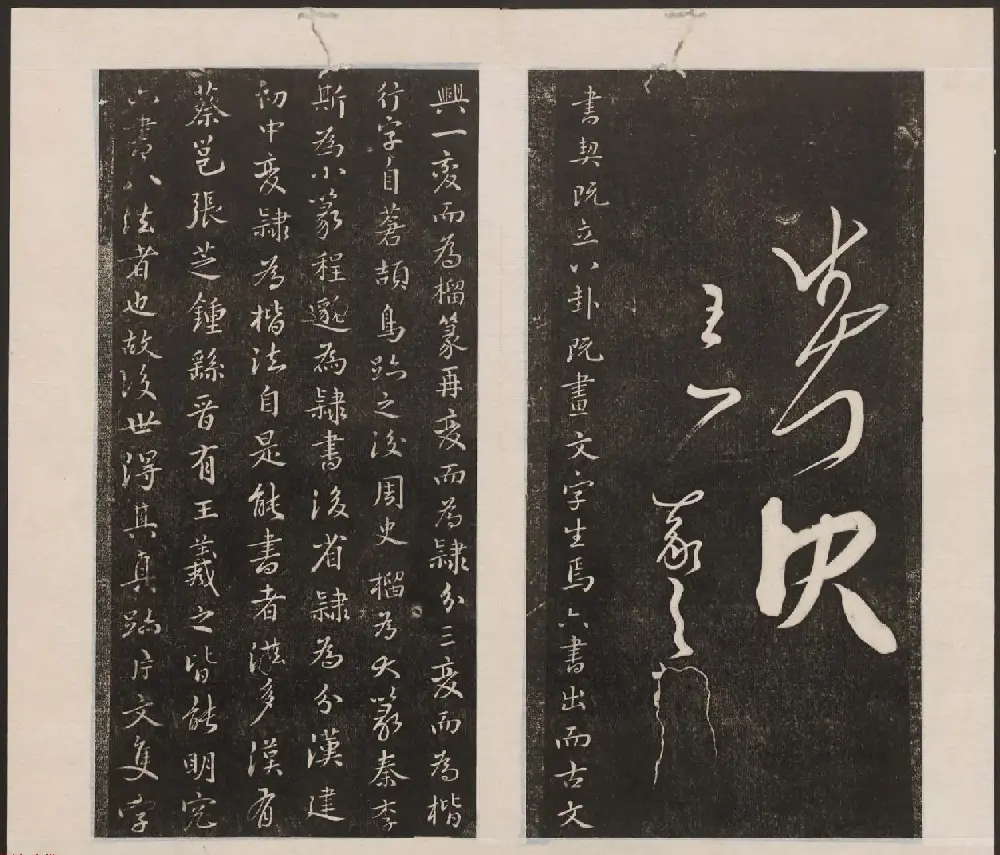 王
羲之
書契既立八卦既畫文字生焉六書出而古文
興一变而為榴篆再变而為隸分三变而為楷
行字自蒼頡鳥跡之後周史榴為大篆秦李
斯為小篆程邈為隸書後省隸為分漢建
初中变隸為楷法自是能書者滋多漢有
蔡邕張芝鍾繇晋有王羲之皆能明究
六書八法者也故後世得其真跡片文隻字